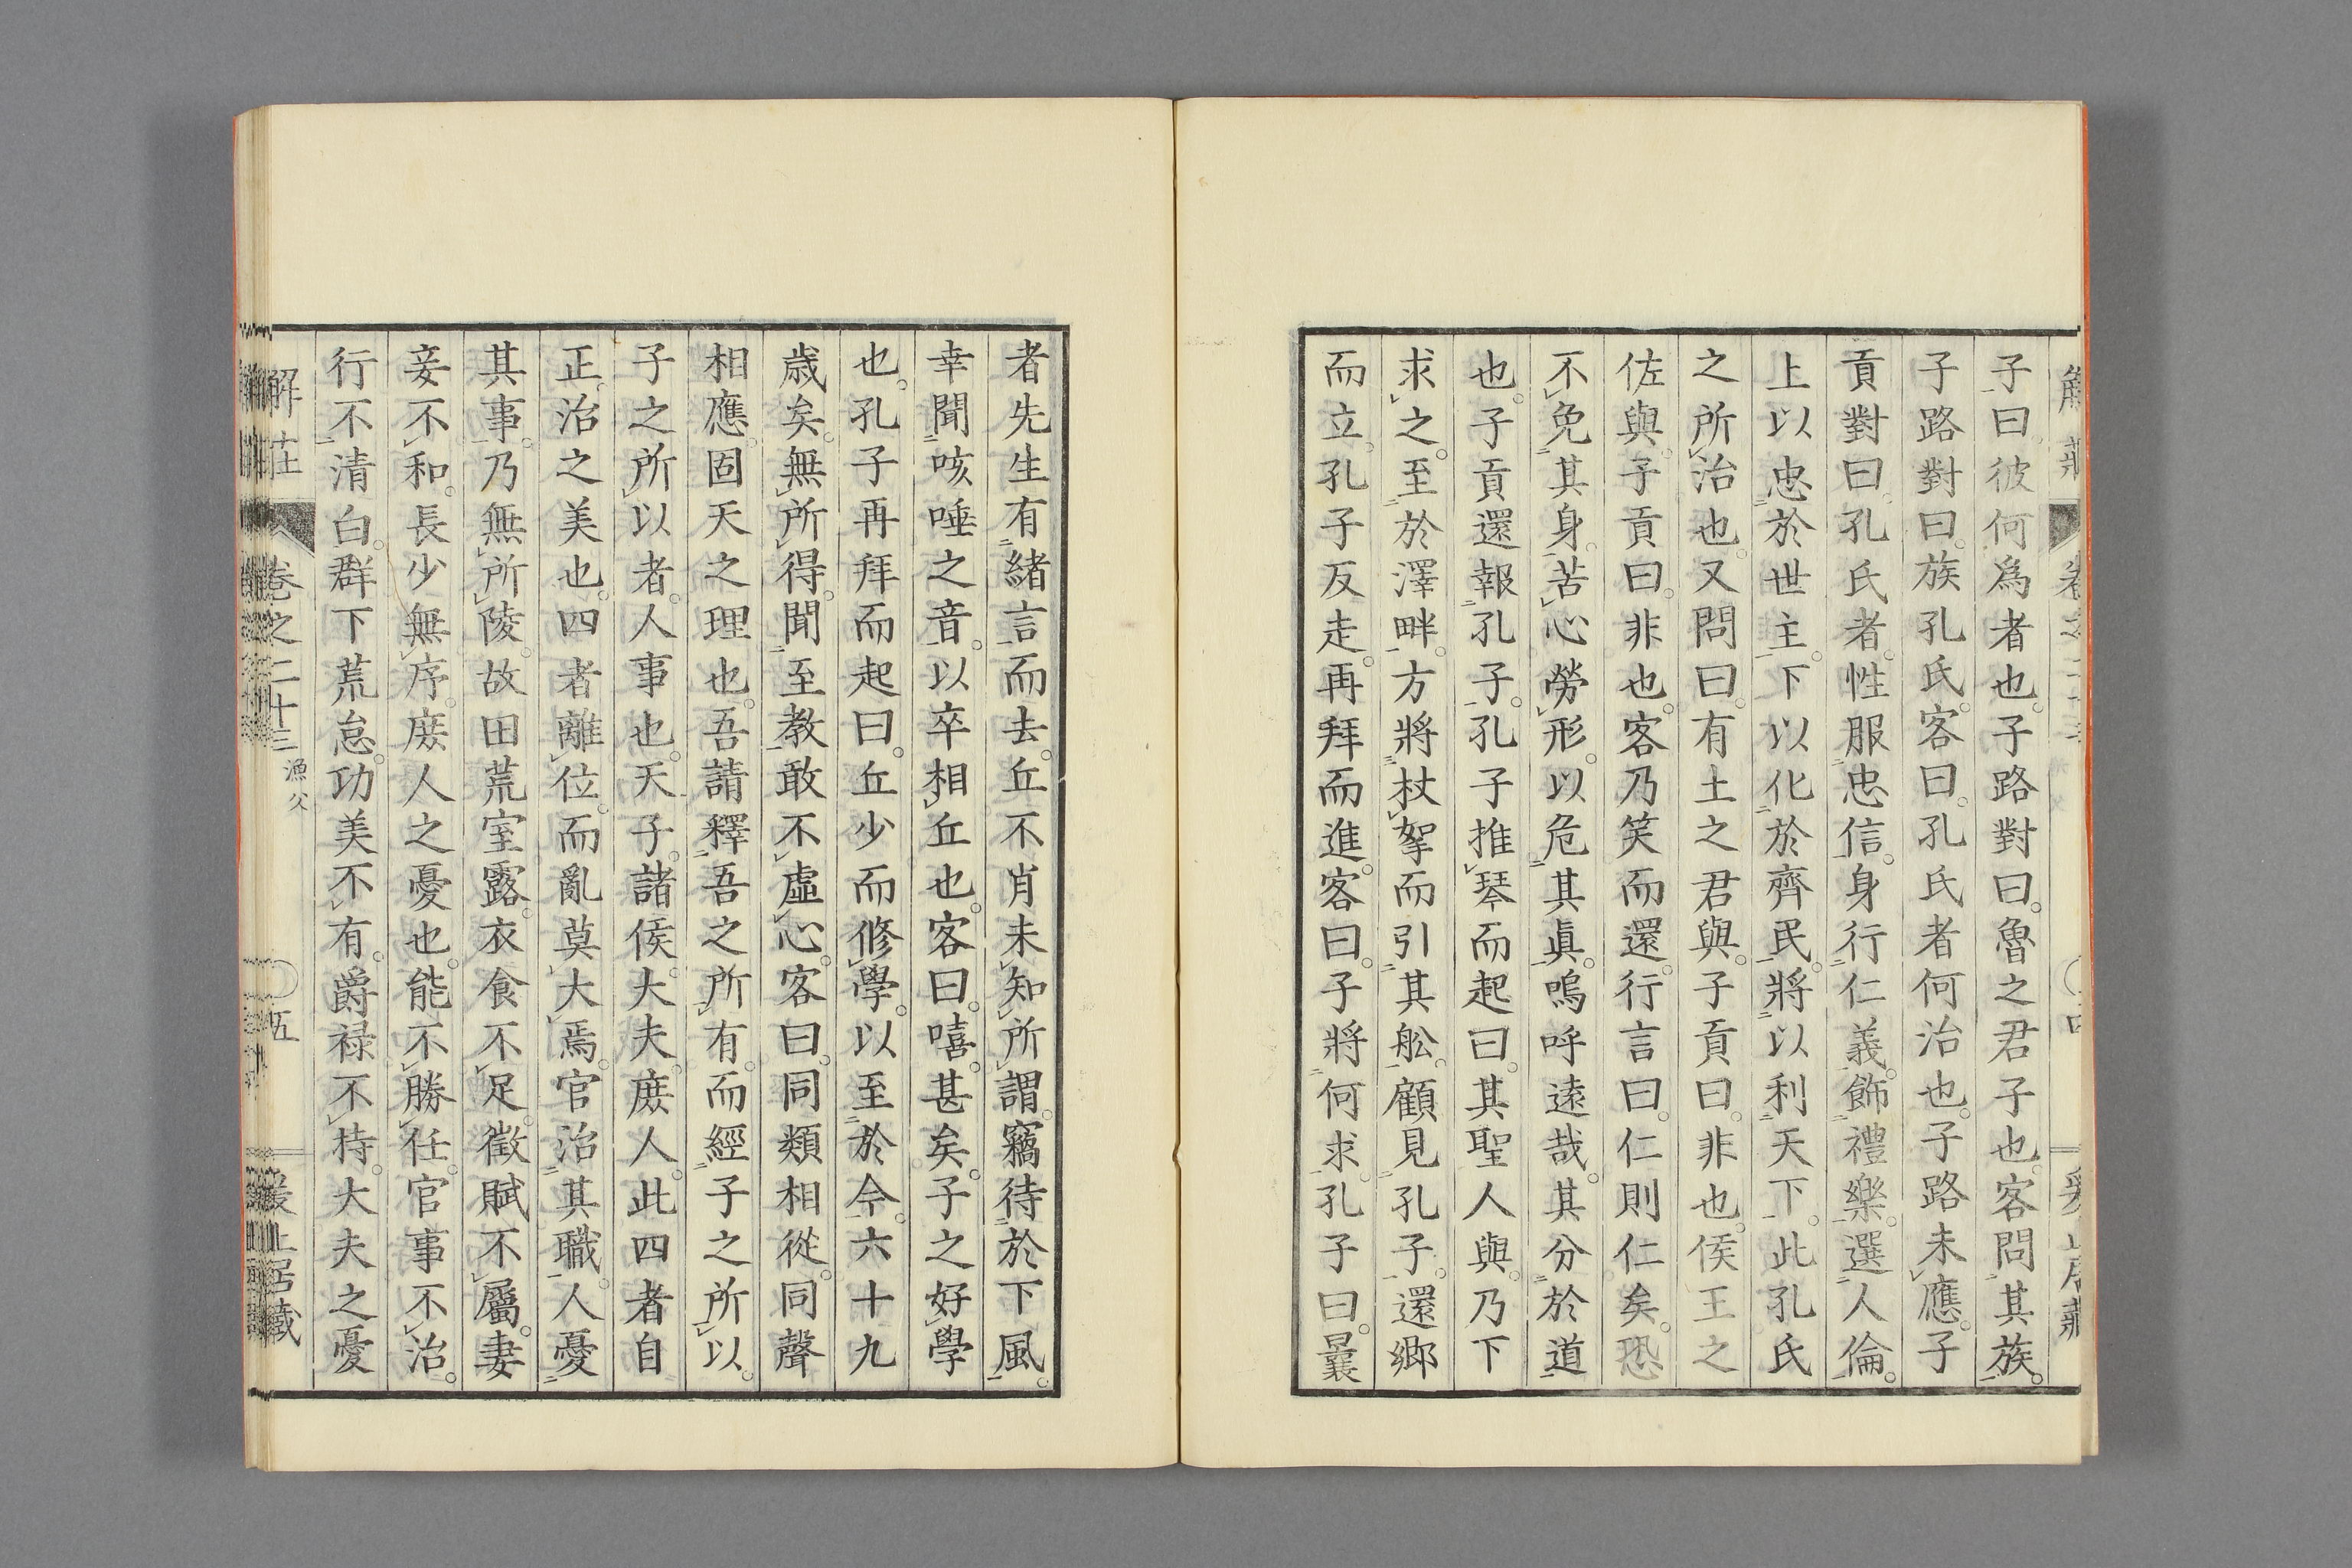 子曰彼何爲者也子路對曰魯之君子也客問其族
子路對曰族孔氏客曰孔氏者何治也子路未應子
貢對曰孔氏者性服忠信身行仁義飾禮樂選人倫
上以忠於世主下以化於齊民將以利天下此孔氏
之所治也又問曰有土之君與子貢曰非也侯王之
佐與子貢曰非也客乃笑而還行言曰仁則仁矣恐
不免其身苦心勞形以危其眞嗚呼遠哉其分於道
也子貢還報孔子孔子推琴而起曰其聖人與乃下
求之至於澤畔方將杖拏而引其舩顧見孔子還鄉
而立孔子反走再拜而進客曰子將何求孔子曰曩
者先生有緒言而去丘不肖未知所謂竊待於下風
幸聞咳唾之音以卒相丘也客曰嘻甚矣子之好學
也孔子再拜而起曰丘少而修學以至於今六十九
歲矣無所得聞至教敢不虛心客曰同類相從同聲
相應固天之理也吾請釋吾之所有而經子之所以
子之所以者人事也天子諸侯大夫庶人此四者自
正治之美也四者離位而亂莫大焉官治其職人憂
其事乃無所陵故田荒室露衣食不足徵賦不屬妻
妾不和長少無序庶人之憂也能不勝任官事不治
行不清白群下荒怠功美不有爵禄不持大夫之憂
解莊 卷之二十三 漁父 五